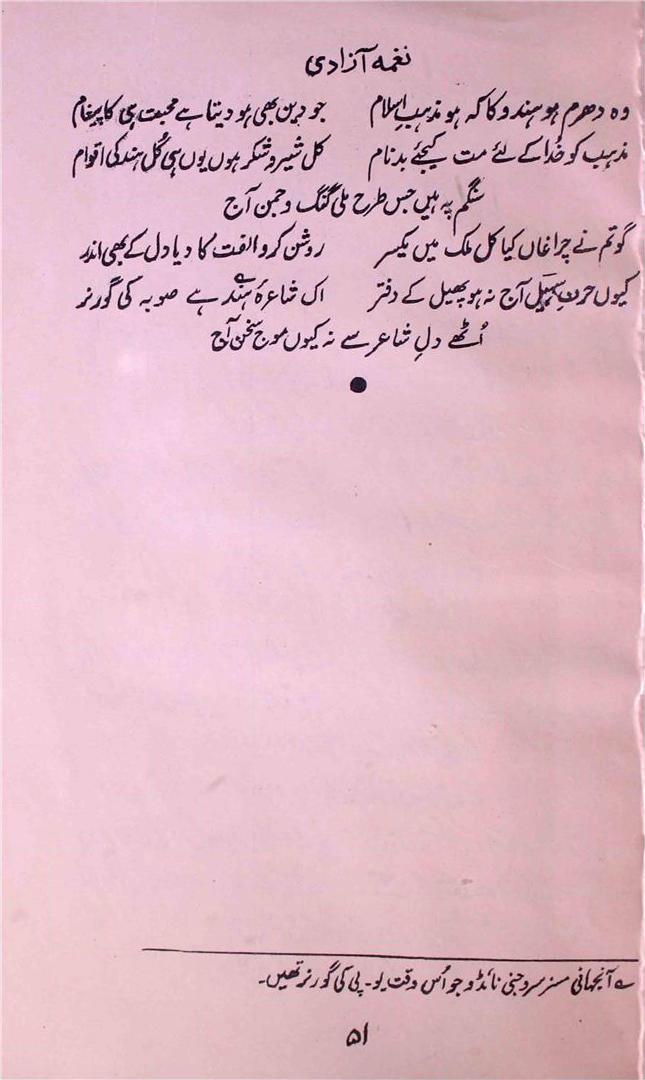 نغمہ آزادی
وہ دھرم ہو ہندو کا کہ ہو مذہبِ اسلام جو دین بھی ہو دیتا ہے محبت ہی کا پیغام
مذہب کو خُدا کے لئے مت کیجئے بدنام کل شیر و شکر ہوں یوں ہی کُل ہند کی اقوام
سنگم پہ ہیں جس طرح ملی گنگ و جمن آج
گوتم نے چراغاں کیا کل ملک میں یکسر روشن کرو الفت کا دیا دل کے بھی اندر
کیوں حرفِ سہیل آج نہ ہو پھیل کے دفتر اک شاعرۂ ہند ہے صوبہ کی گورنر
اُٹھے دلِ شاعر سے نہ کیوں موجِ سخن آج
آنجہانی مسز سروجنی نائڈو جو اُس وقت یو۔ پی کی گورنر تھیں۔
۵۱